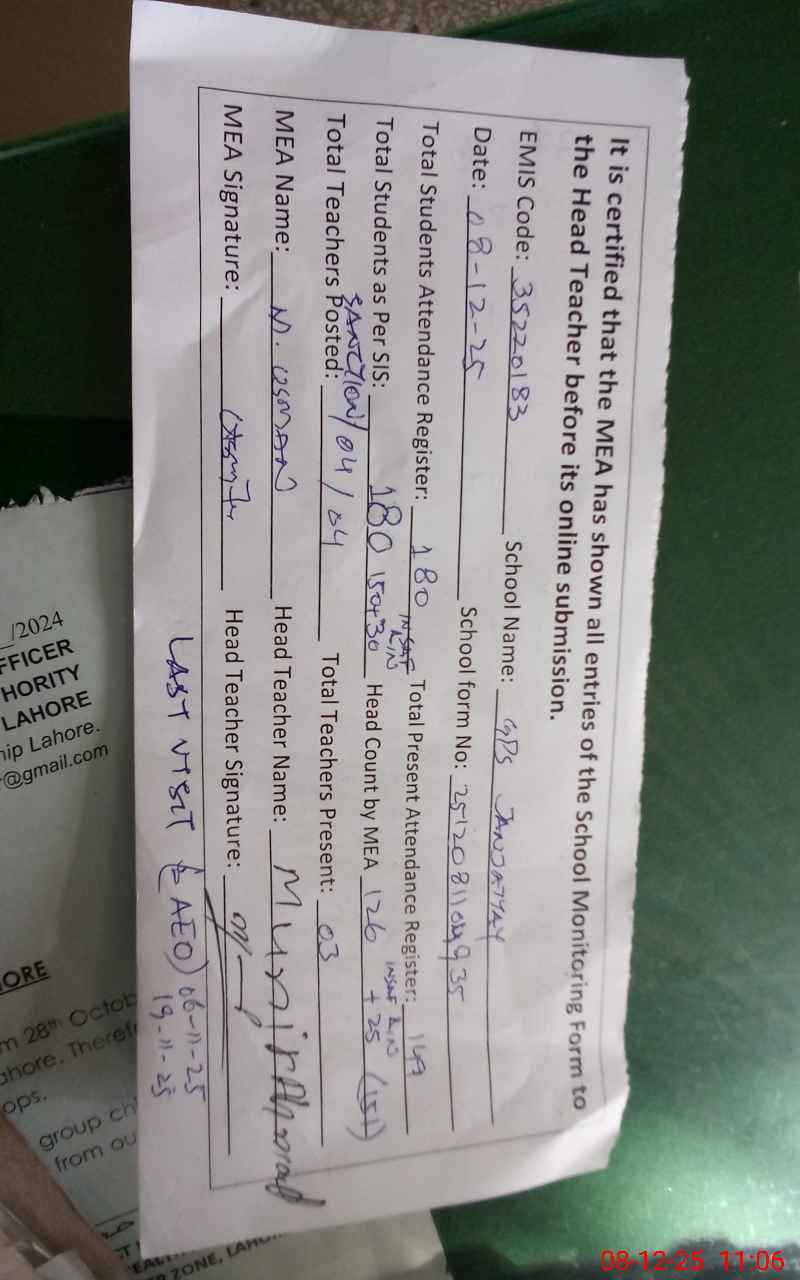 It is certified that the MEA has shown all entries of the School Monitoring Form to
the Head Teacher before its online submission.
EMIS Code: 35220183 School Name: GPS
Date: 08-12-25 School form No:
Total Students Attendance Register: 180 Total Present Attendance Register: 149
Total Students as Per SIS: 180 150+30 Head Count by MEA 126 + 25 (151)
SANCTION/04/04
Total Teachers Posted: Total Teachers Present: 03
MEA Name: M. USMAN Head Teacher Name: Munir Ahmad
MEA Signature: Head Teacher Signature:
LAST VISIT (AEO) 06-11-25
19-11-25
/2024
FFICER
HORITY
LAHORE
hip Lahore.
@gmail.com
ORE
m 28th Octob
ahore. Theref
ops.
group ch
from ou
ZONE, LAH
08-12-25 11:06